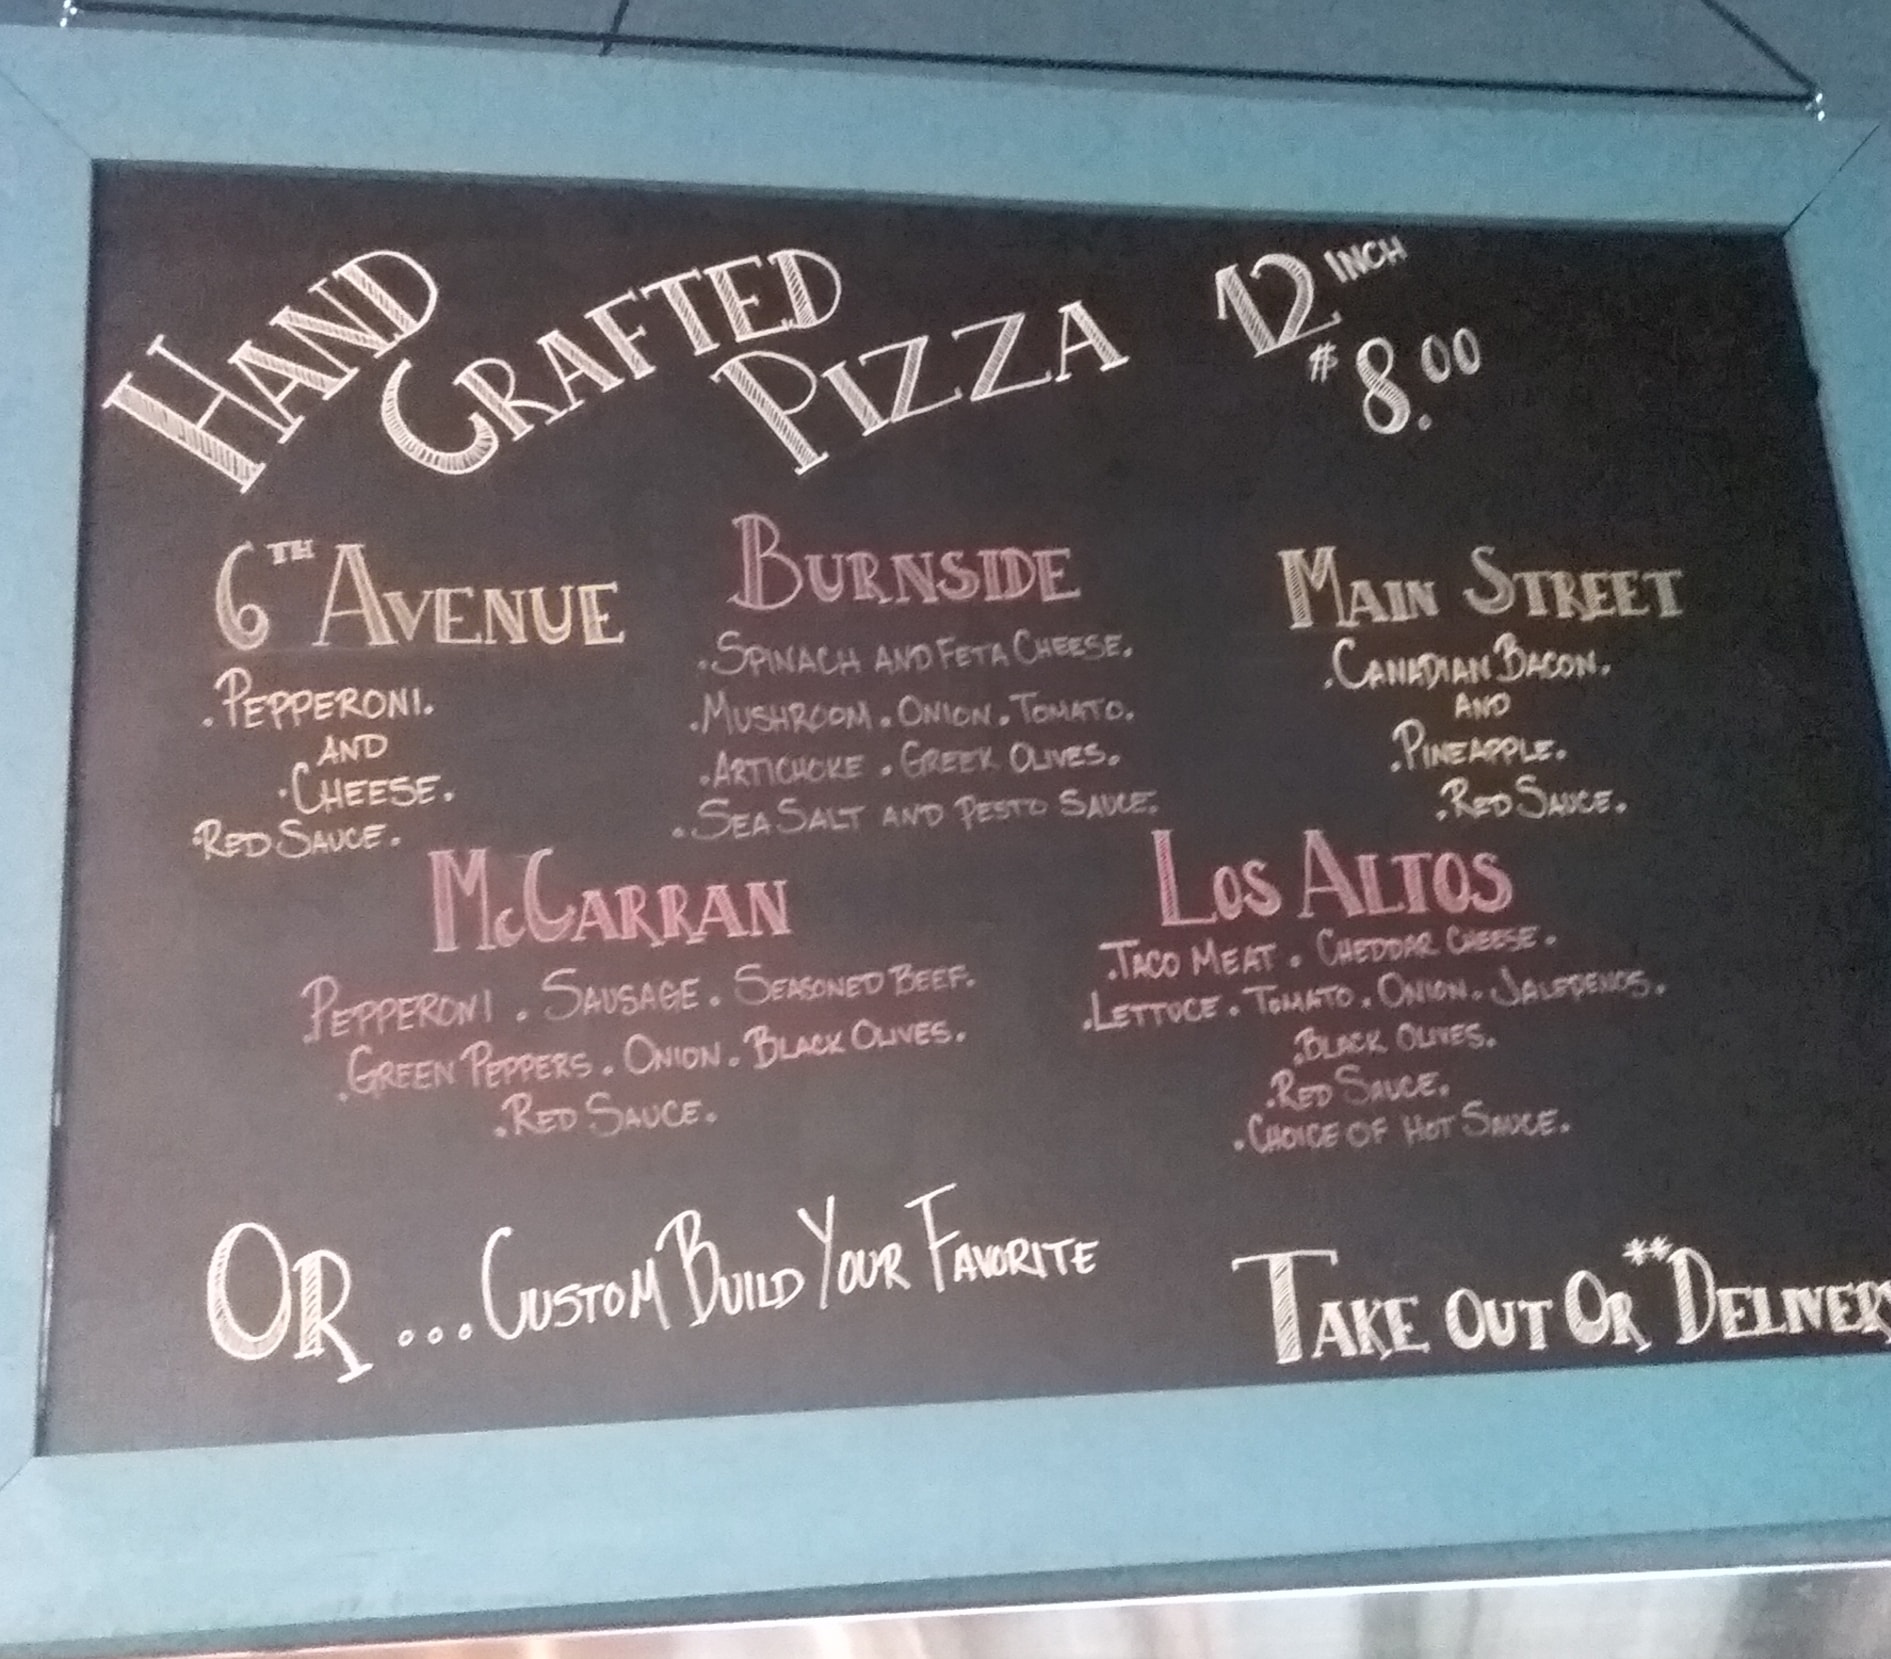 HAND CRAFTED PIZZA
12 INCH
$8.00
6TH AVENUE
.PEPPERONI.
AND
.CHEESE.
.RED SAUCE.
BURNSIDE
.SPINACH AND FETA CHEESE.
.MUSHROOM.ONION.TOMATO.
.ARTICHOKE.GREEK OLIVES.
.SEA SALT AND PESTO SAUCE.
MAIN STREET
.CANADIAN BACON.
AND
.PINEAPPLE.
.RED SAUCE.
MCCARRAN
PEPPERONI.SAUSAGE.SEASONED BEEF.
.GREEN PEPPERS.ONION.BLACK OLIVES.
.RED SAUCE.
LOS ALTOS
.TACO MEAT.CHEDDAR CHEESE.
.LETTUCE.TOMATO.ONION.JALEPENOS.
.BLACK OLIVES.
.RED SAUCE.
.CHOICE OF HOT SAUCE.
OR ...CUSTOM BUILD YOUR FAVORITE
TAKE OUT OR **DELIVERY